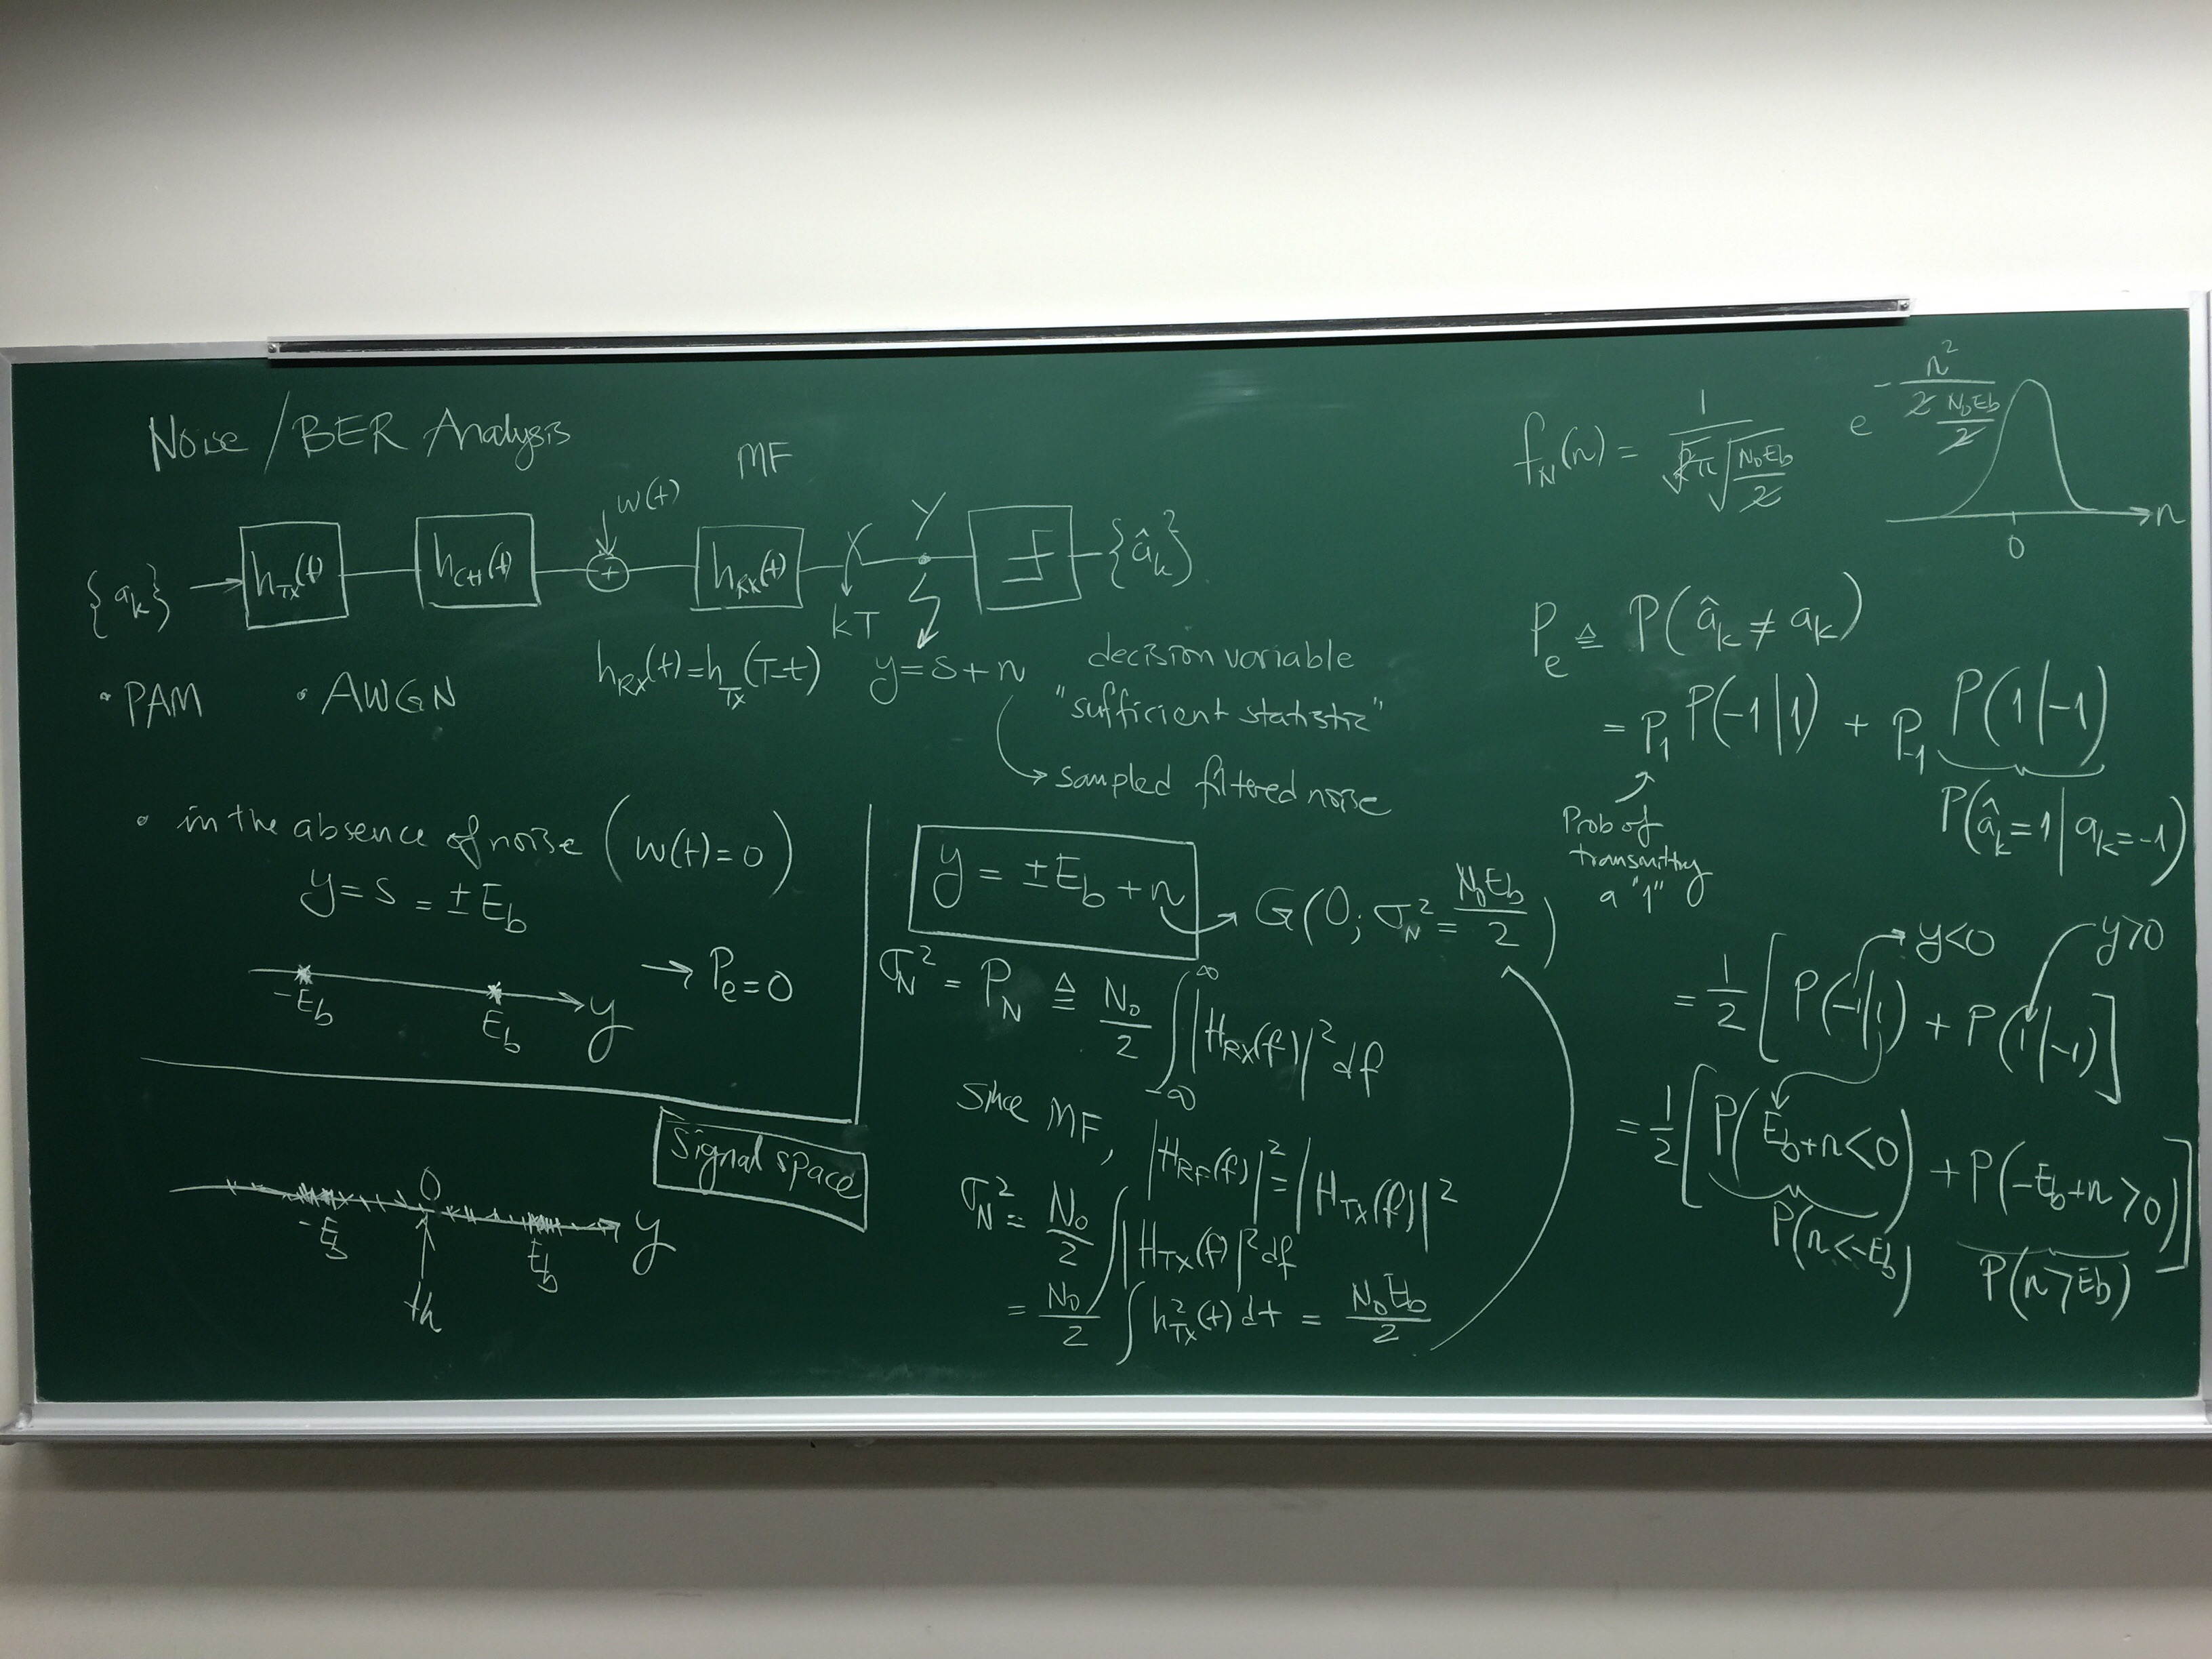 Noise / BER Analysis
MF
w(t)
Y
{a_k} → h_TX(t) h_CH(t) + h_RX(t) {â_k}
kT
h_RX(t) = h_TX(T-t)
y = s + n
decision variable
"sufficient statistic"
→ sampled filtered noise
• PAM • AWGN
• in the absence of noise (w(t) = 0)
y = s = ± E_b
-E_b E_b y
→ P_e = 0
Signal space
0
-E_b E_b y
th
y = ± E_b + n → G(0; σ_N^2 = N_0 E_b / 2)
σ_N^2 = P_N ≜ N_0/2 ∫_{-∞}^{∞} |H_RX(f)|^2 df
Since MF, |H_RF(f)|^2 = |H_TX(f)|^2
σ_N^2 = N_0/2 ∫ |H_TX(f)|^2 df
= N_0/2 ∫ h_TX^2(t) dt = N_0 E_b / 2
f_N(n) = 1 / (√2π √(N_0 E_b / 2)) e^{- n^2 / (2 N_0 E_b / 2)}
0 n
P_e ≜ P(â_k ≠ a_k)
= P_1 P(-1|1) + P_-1 P(1|-1)
P(â_k = 1 | a_k = -1)
Prob of
transmitty
a "1"
y<0 y>0
= 1/2 [P(-1|1) + P(1|-1)]
= 1/2 [P(E_b + n < 0) + P(-E_b + n > 0)]
P(n < -E_b) P(n > E_b)